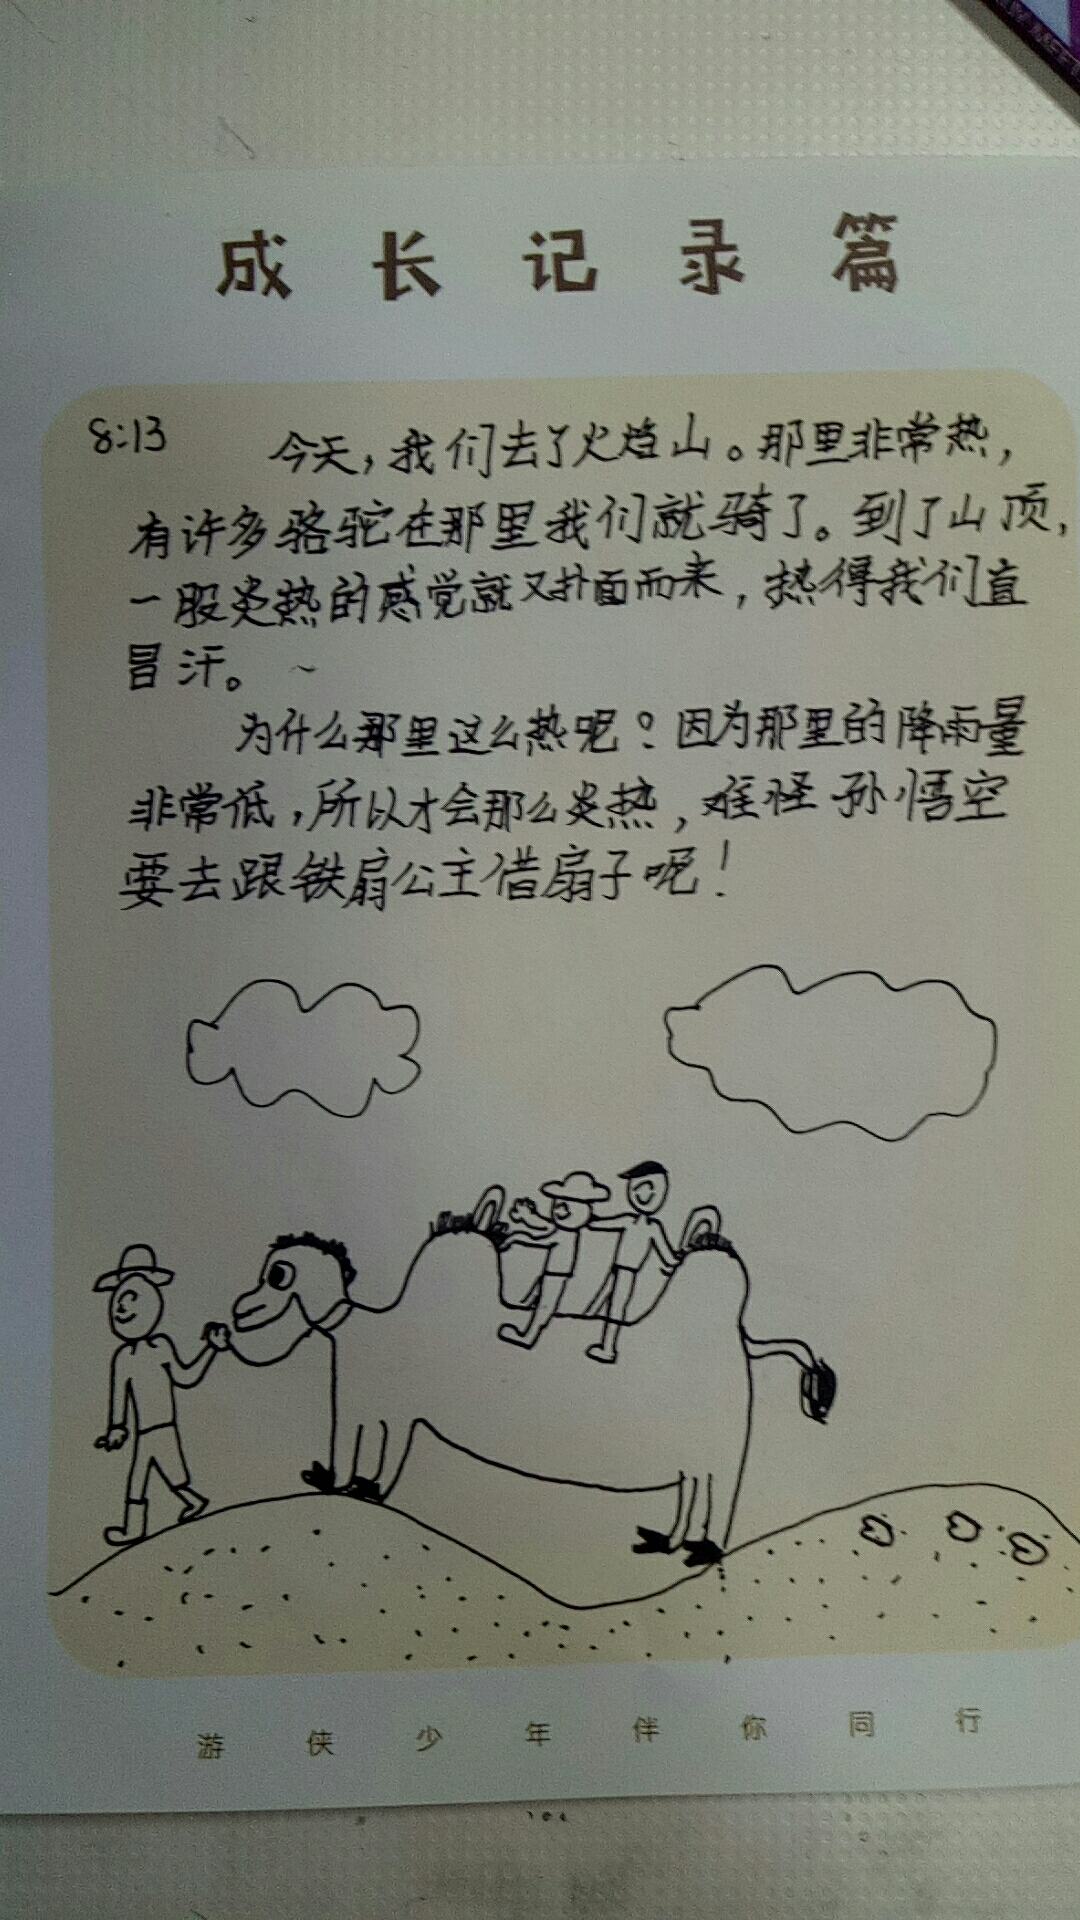 成长记录篇
8:13 今天,我们去了火焰山。那里非常热,
有许多骆驼在那里我们就骑了。到了山顶,
一股炎热的感觉就又扑面而来,热得我们直
冒汗。~
为什么那里这么热呢?因为那里的降雨量
非常低,所以才会那么炎热,难怪孙悟空
要去跟铁扇公主借扇子呢!
游侠少年伴你同行